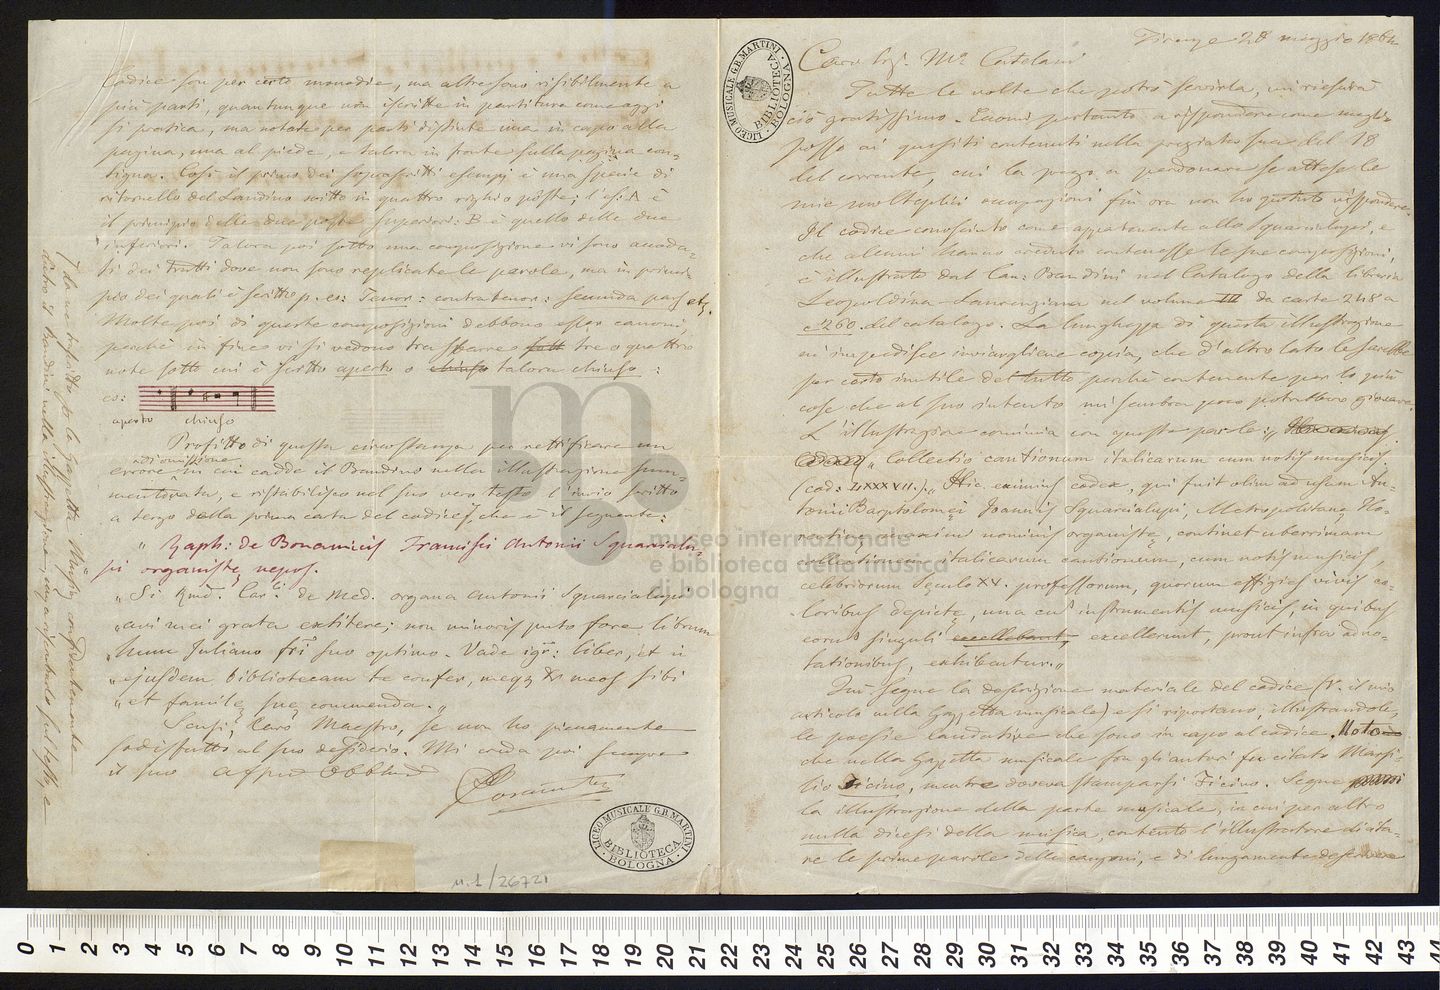 Firenze 28 maggio 1864
Caro Sig. Mº Catelani
Tutte le volte che potrò servirla, mi riescirà
ciò gratissimo. Eccomi pertanto a rispondere come meglio
posso ai quesiti contenuti nella pregiata sua del 18
del corrente, cui la prego a perdonare se attese le
mie molteplici occupazioni fin ora non ho potuto rispondere.
Il codice conosciuto come appartenente allo Squarcialupi, e
che alcuni hanno creduto contenesse le sue composizioni,
è illustrato dal Can: Bandini nel Catalogo della libreria
Leopoldina-Laurenziana nel volume III da carte 248 a
c. 260 del catalogo. La lunghezza di questa illustrazione
m'impedisce inviargliene copia, che d'altro lato le sarebbe
per certo inutile del tutto perchè contenente per lo più
cose che al suo intento mi sembra poco potrebbero giovare.
L'illustrazione comincia con queste parole:
Codex „ Collectio cantionum italicarum cum notis musicis
(cod: LXXXVII.) „ Hic eximius codex, qui fuit olim ad usum An-
tonii Bartolomei Joannis Squarcialupi, Metropolitanę Flo-
celebriorum Sęculo XV. professorum, quorum effigies vivis co-
loribus depictę, una cum instrumentis musicis, in quibus
eorum singuli excellebant, excellerunt, prout infra adno-
tationibus, exhibentur. „
Quì segue la descrizione materiale del codice (V. il mio
articolo nella Gazzetta musicale) e si riportano, illustrandole,
le poesie laudative che sono in capo al codice. Noto
che nella Gazzetta musicale fra gli autori fu citato Marsi-
lio Sicino, mentre doveva stamparsi Ficino. Segue
la illustrazione della parte musicale, in cui per altro
nulla dicesi della musica, contento l'illustratore di cita-
re le prime parole delle canzoni, e di lungamente descrivere
Codice son per certo monodie, ma altre sono visibilmente a
più parti, quantunque non iscritte in partitura come oggi
si pratica, ma notate per parti distinte una in capo alla
pagina, una al piede, e talora in fronte sulla pagina con-
tigua. Così il primo dei soprascritti esempi è una specie di
ritornello del Landino scritto in quattro righi o poste; l'es: A è
il principio delle due poste superiori: B è quello delle due
inferiori. Talora poi sotto una composizione vi sono accoda-
ti dei tratti dove non sono replicate le parole, ma in princi-
pio dei quali è scritto p. es: Tenor: contratenor: secunda pars etc.
Molte poi di queste composizioni debbono esser canoni,
perchè in fine vi si vedono tra sbarre tre o quattro
note sotto cui è scritto aperto o chiuso talora chiuso:
es:
aperto chiuso
Profitto di questa circostanza per rettificare un
errore in cui cadde il Bandini nella illustrazione sum-
mentovata, e ristabilisco nel suo vero testo l'invio scritto
a tergo della prima carta del codice, che è il seguente:
„ Raph: de Bonamicis Francisci Antonii Squarcialu-
„ pi organistę nepos.
„ Si Rmo. Car: de Med. organa Antonii Squarcialupi
„ avi mei grata extitere; non minoris puto fore librum
„ hunc Juliano fri suo optimo. Vade igr: liber, et in
„ ejusdem bibliotecam te confer, meqz et meos sibi
„ et familę suę commenda. „
Scusi, Caro Maestro, se non ho pienamente
sodisfatto al suo desiderio. Mi creda poi sempre
il suo
LICEO MUSICALE G.B. MARTINI
BIBLIOTECA
BOLOGNA
LICEO MUSICALE G.B. MARTINI
BIBLIOTECA
BOLOGNA
museo internazionale
e biblioteca della musica
di bologna
0 1 2 3 4 5 6 7 8 9 10 11 12 13 14 15 16 17 18 19 20 21 22 23 24 25 26 27 28 29 30 31 32 33 34 35 36 37 38 39 40 41 42 43 44